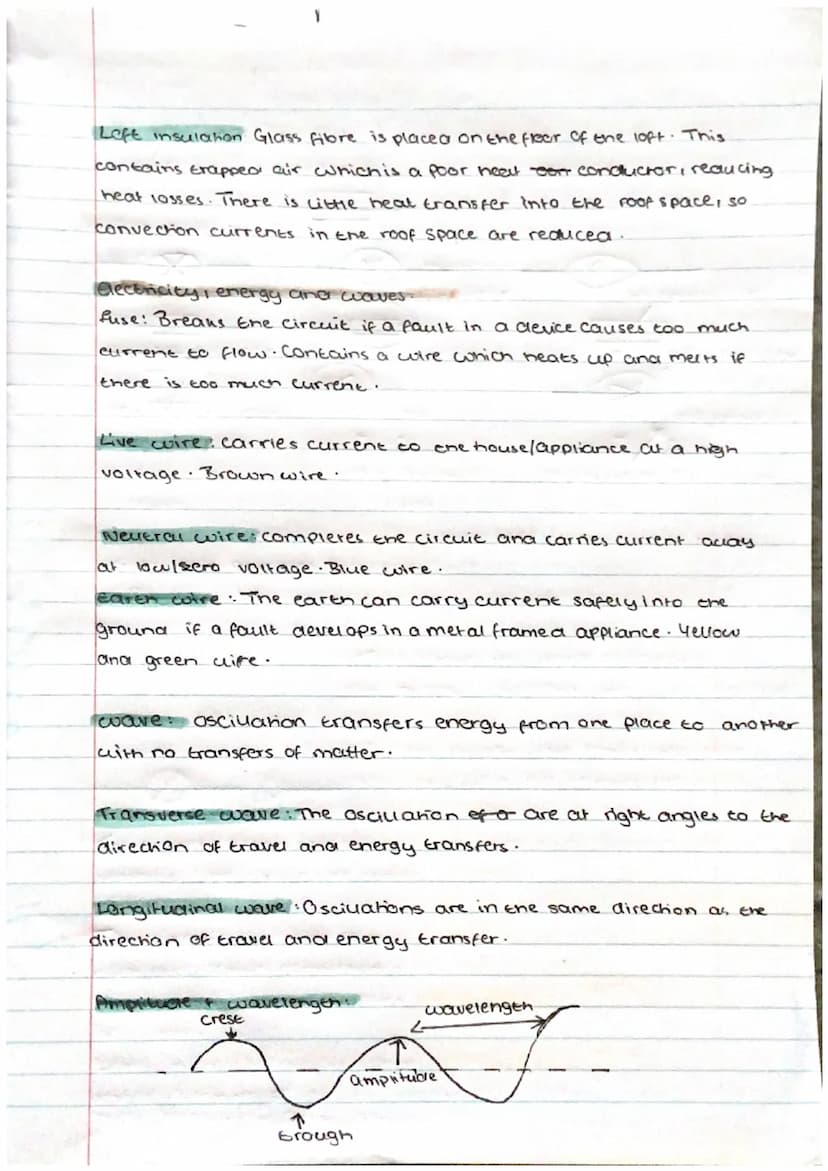 Loft insulation Glass fibre is placed on the floor of the loft. This
contains trapped air which is a poor heat conductor, reducing
heat losses. There is little heat transfer into the roof space, so
convection currents in the roof space are reduced.
Electricity, energy and waves.
fuse: Breaks the circuit if a fault in a device causes too much
current to flow. Contains a wire which heats up and melts if
there is too much current.
Live wire: carries current to the house/appliance at a high
voltage. Brown wire.
Neutral wire: completes the circuit and carries current away
at low/zero voltage. Blue wire.
Earth wire: The earth can carry current safely into the
ground if a fault develops in a metal framed appliance. Yellow
and green wire.
wave: oscillation transfers energy from one place to another
with no transfers of matter.
Transverse wave: The oscillation are at right angles to the
direction of travel and energy transfers.
Longitudinal wave: Oscillations are in the same direction as the
direction of travel and energy transfer.
Amplitude + wavelength:
crest
wavelength
amplitude
trough